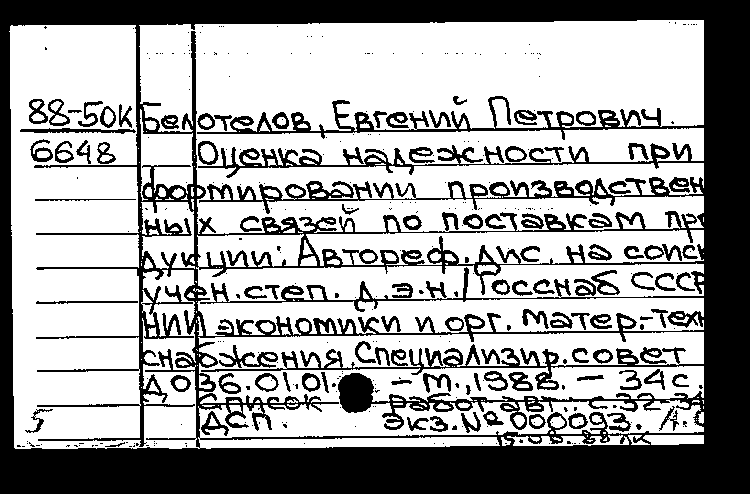 88-50К Белотелов, Евгений Петрович.
6648 Оценка надежности при
формировании производствен
ных связей по поставкам про
дукции: Автореф. дис. на соиск
учен. степ. д.э.н. / Госснаб СССР
НИИ экономики и орг. матер.-техн
снабжения. Специализир. совет
Д 036.01.01. - М., 1988. - 34 с.
Список работ авт.: с. 32-34
5 ДСП. Экз. № 000093.
15.06.88 ЛК